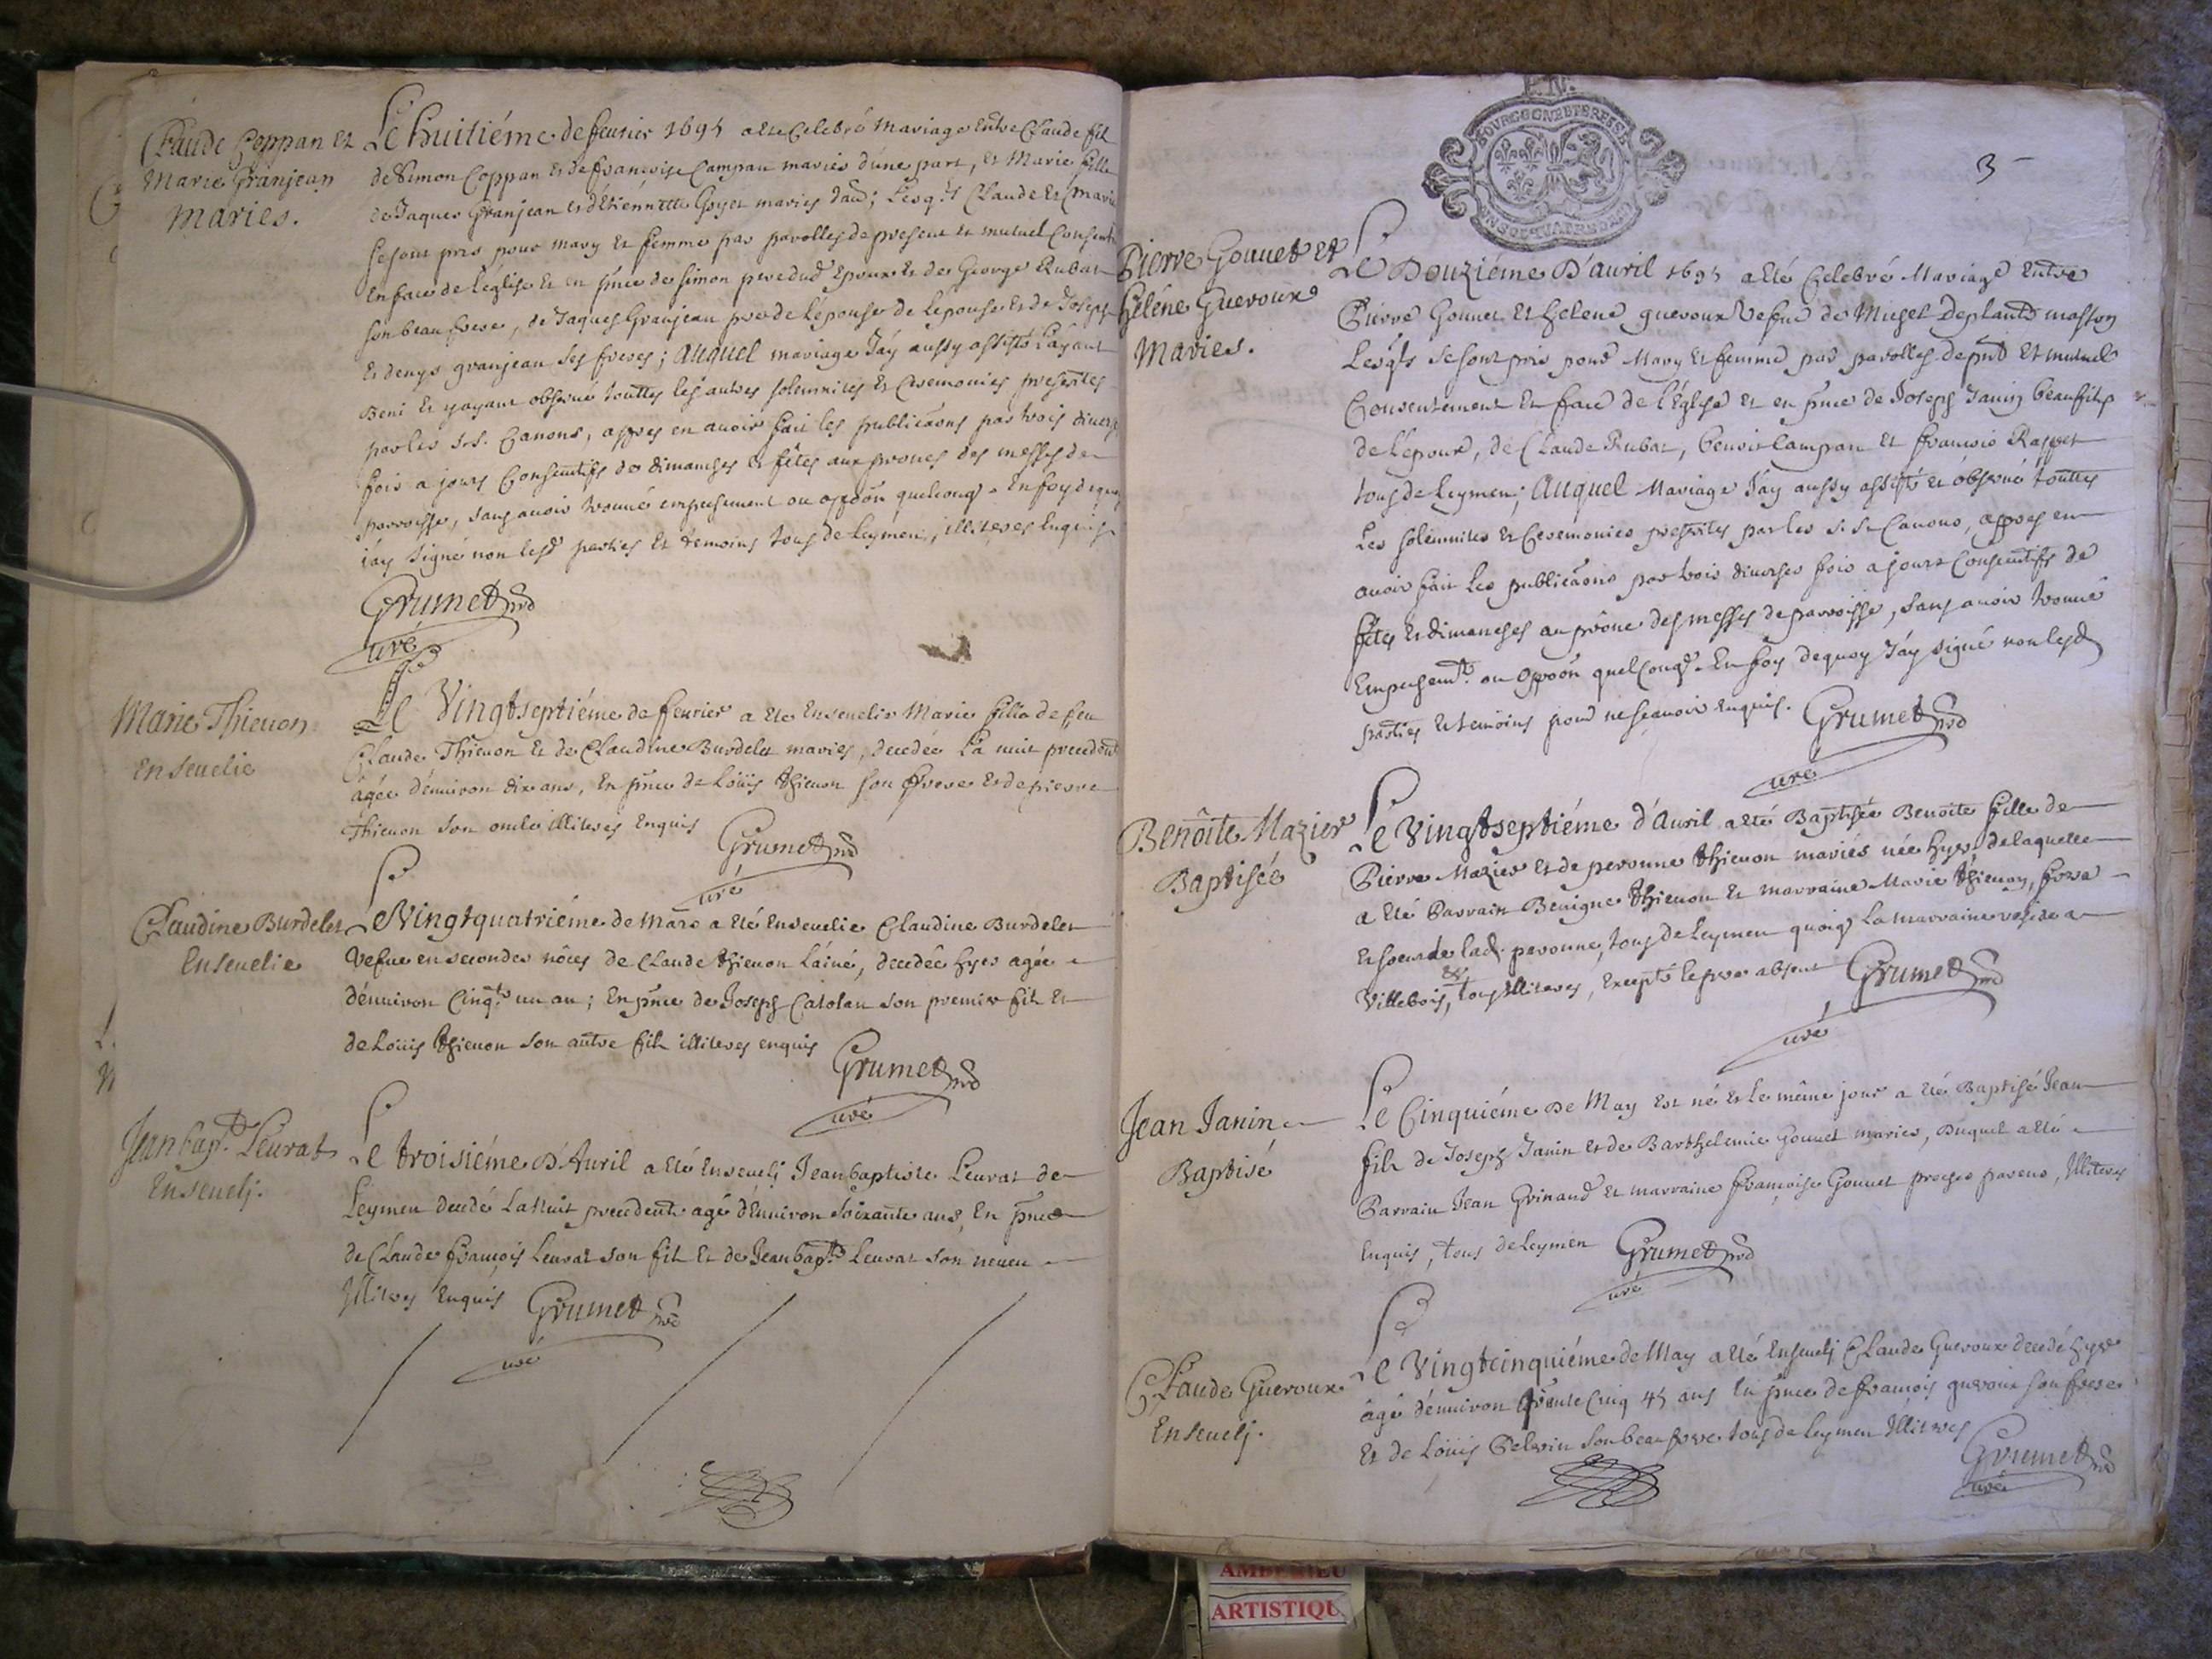 Claude Coppan et
Marie Granjean
Maries.
Le huitiéme de feurier 1695 a ete Celebré Mariage entre Claude fils
de Simon Coppan et de françoise Campan mariés d'une part, et Marie fille
de Jaques Granjean et d'Etiennette Goyet mariés d'au; Lesqls Claude et Marie
se sont pris pour mary et femme par parolles de present et mutuel Consent
en face de l'église et en pnce de Simon pere dud Epoux et de George Rubat
son beau frere, de Jaques Granjean pere de l'épouse de lepouse et de Joseph
et denys granjean ses freres; Auquel mariage J'ay aussy assisté L'ayant
Beni et y ayant obserué touttes les autres solemnites et Ceremonies prescrites
par les s.s. Canons, appres en auoir fait les publicaons par trois diuerses
fois a jours Consecutifs de dimanches et fêtes aux prones des messes de
parroisse, sans auoir trouué empechement ou oppoon quelconq. En foy de quoy
j'ay signé non lesd parties et témoins tous de Leymen, illiteres enquis
Grumet pbr
curé
Marie Thieuon
enseuelie
Le Vingtseptiéme de feurier a ete enseuelie Marie fille de feu
Claude Thieuon et de Claudine Burdelet mariés, decedée la nuit precedente
âgée d'enuiron dix ans, en pnce de Loüis thieuon son frere et de pierre
Thieuon son oncle illiteres enquis
Grumet pbr
curé
Claudine Burdelet
Enseuelie
Le Vingtquatriéme de Mars a eté enseuelie Claudine Burdelet
Vefue en secondes nôces de Claude thieuon L'ainé, decedée hyer agée
d'enuiron Cinqte un an; En pnce de Joseph Catolan son premier fils et
de Loüis thieuon son autre fils illiteres enquis
Grumet pbr
curé
Jean bapt. Leurat
Enseuely.
Le troisiéme D'Auril a eté enseuely Jean baptiste Leurat de
Leymen decedé La nuit precedente agé d'enuiron soixante ans, En pnce
de Claude françois Leurat son fils et de Jean bapt. Leurat son neueu
Illiteres Enquis
Grumet pbr
curé
3
Pierre Gonnet et
heléne Gueroux
Maries.
Le Douziéme D'auril 1695 a eté Celebré Mariage entre
Pierre Gonnet et helene gueroux Vefue de Michel Deplante masson
Lesqls se sont pris pour Mary et femme par parolles de pnt et mutuel
Consentement en face de l'Eglise et en pnce de Joseph Janin beaufils
de l'epoux, de Claude Rubat, benoit Campan et françois Rappet
tous de Leymen; Auquel Mariage J'ay aussy assisté et obserué touttes
Les solemnites et Ceremonies prescrites par les s.s. Canons, appres en
auoir fait les publicaons par trois diuerses fois a jours Consecutifs de
fêtes et dimanches au prône des messes de parroisse, sans auoir trouué
Empechemt. ou Oppoon quelconq. En foy de quoy J'ay signé non lesd
parties et temoins pour ne sçauoir enquis.
Grumet pbr
curé
Benoîte Mazier
Baptisée
Le Vingtseptiéme d'Auril a eté Baptisée Benoîte fille de
Pierre Mazier et de peronne thieuon mariés née hyer de laquelle
a eté Parrain Benigne thieuon et marraine Marie thieuon, frere
et soeur de lad. peronne, tous de Leymen quoiq La marraine reside a
Villebois, et tous Illiteres, Excepté le pere absent
Grumet pbr
curé
Jean Janin
Baptisé
Le Cinquiéme De May est né et le même jour a eté Baptisé Jean
fils de Joseph Janin et de Barthelemie Gonnet maries, Duquel a eté
Parrain Jean Grinand et marraine françoise Gonnet proches parens, Illiteres
Enquis, tous de Leymen
Grumet pbr
curé
Claude Gueroux
Enseuely.
Le Vingtcinquiéme de May a eté enseuely Claude Gueroux decedé hyer
âgé d'enuiron trente Cinq 45 ans en pnce de françois gueroux son frere
et de Loüis Peluin son beau frere tous de Leymen Illiteres
Grumet pbr
curé
AMBERIEU
ARTISTIQU